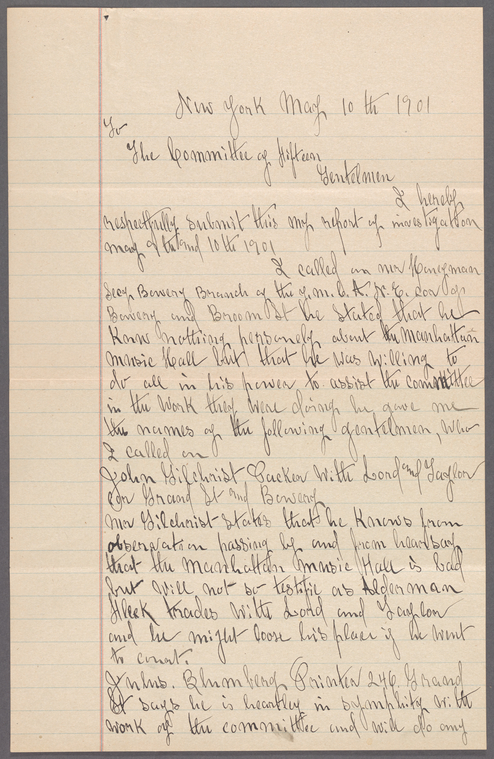 New York May 10th 1901
To
The Committee of fifteen
Gentelmen
I hereby
respectfully submit this my report of investigation
may 9th and 10th 1901
I called on mr Honeyman
Secy Bowery Branch of the Y.M.C.A. N.E. cor of
Bowery and Broom St he stated that he
Know nothing personely about the Manhattan
music Hall but that he was willing to
do all in his power to assist the committee
in the work they were doing he gave me
the names of the following gentelmen, who
I called on
John Gilchrist Packer With Lord and Taylor
Cor Grand St and Bowery
mr Gilchrist states that he Knows from
observation passing by and from hearsay
that the Manhattan Music Hall is bad
but will not so testifie as Alderman
Fleck trades with Lord and Taylor
and he might loose his place if he went
to court.
Julius. Blumberg Printer 246 Grand
St says he is heartley in symphity with
work of the committee and will do any